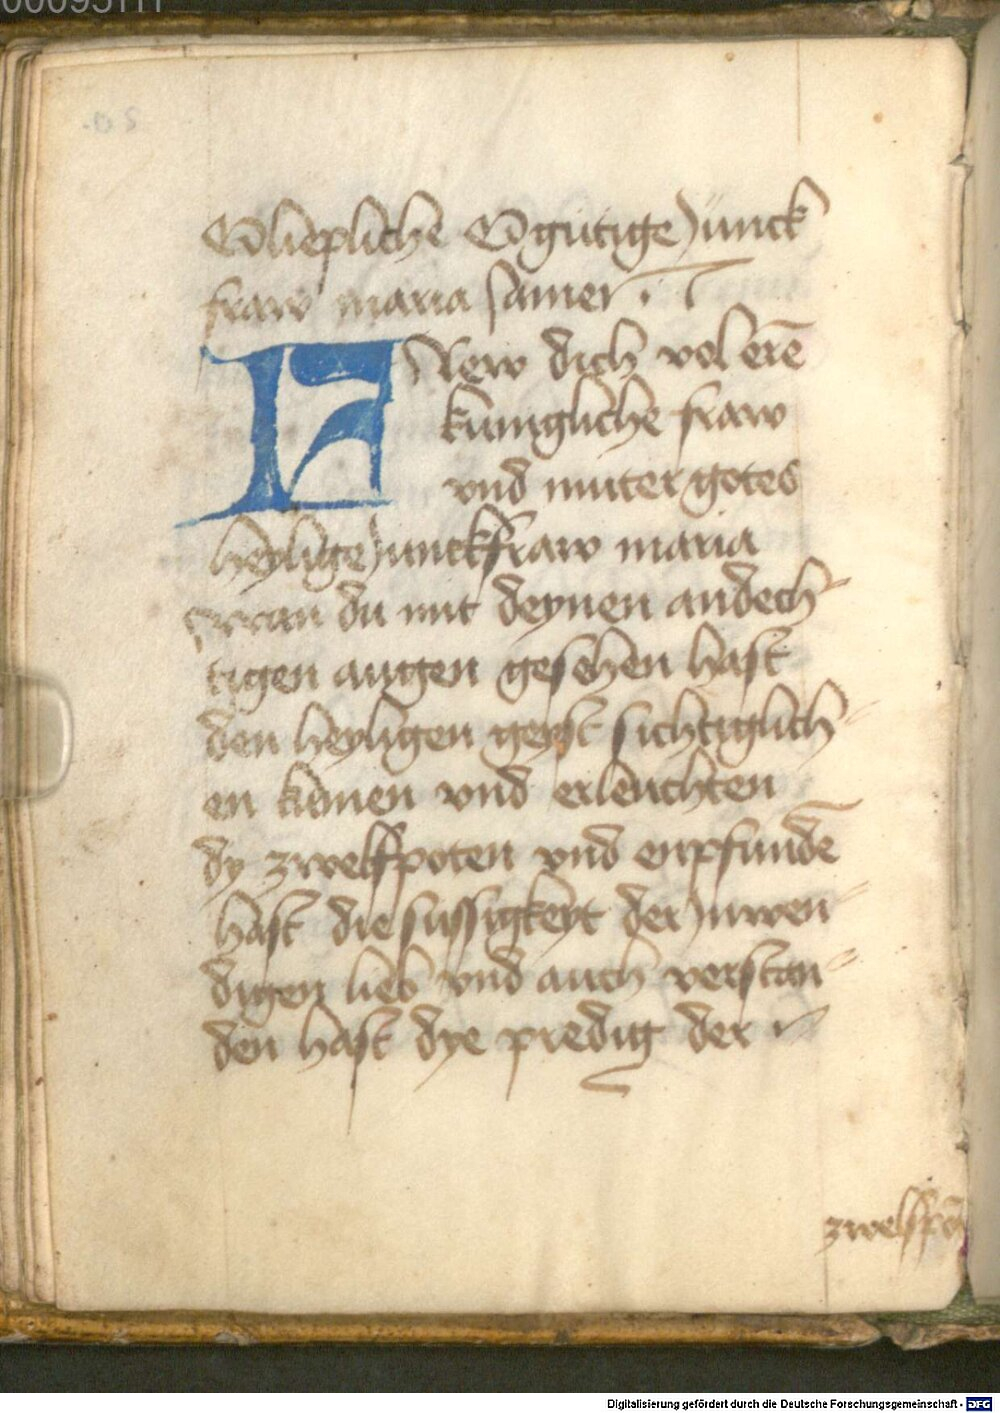 O liepliche O gütige Junck
fraw maria amen .
FRew dich vol erē
kunigliche fraw
vnd muter gotes
heylige Junckfraw maria
wan du mit deynen andech
tigen augen gesehen hast
den heyligen geyst sichtiglich
en kumen vnd erleuchten
dy zwelfpoten vnd enpfundē
hast die sussigkeyt der Inwen
digen lieb vnd auch verstan
den hast dye predig der
Digitalisierung gefördert durch die Deutsche Forschungsgemeinschaft - DFG